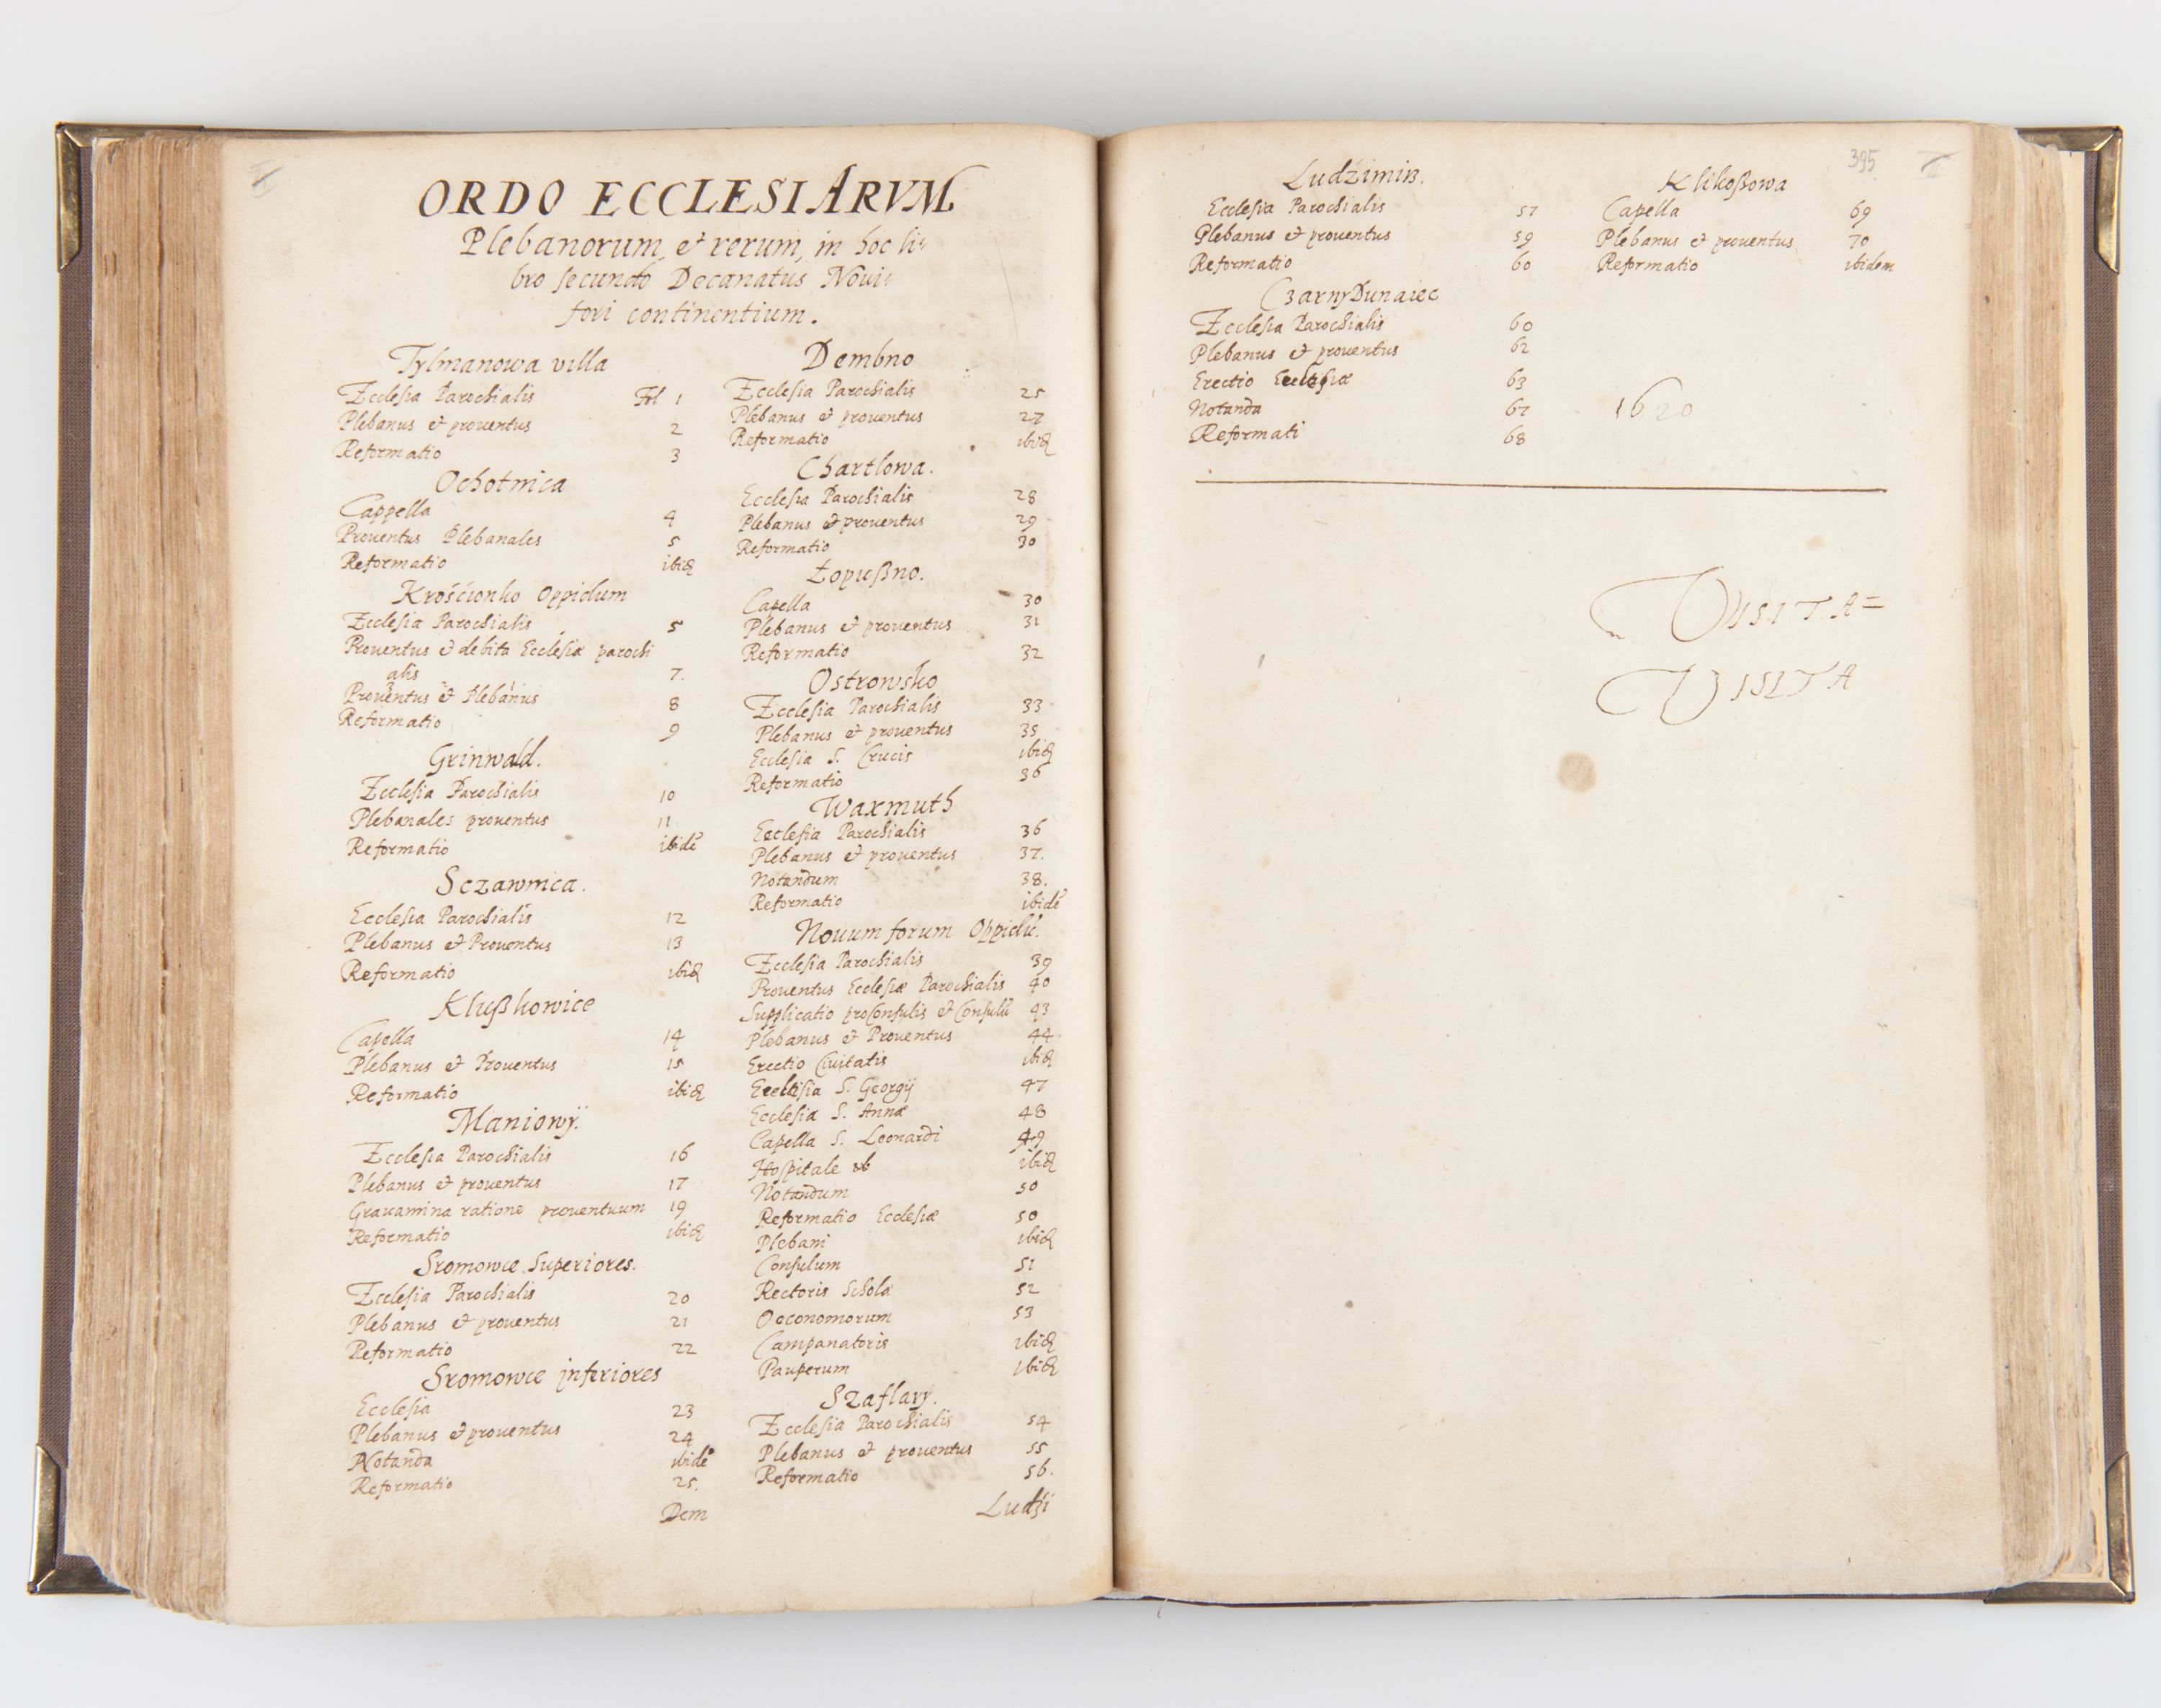 ORDO ECCLESIARVM
Plebanorum, et rerum, in hoc li-
bro secundo Decanatus Noui-
fori continentium.
Tylmanowa villa
Ecclesia Parochialis Fol 1
Plebanus et prouentus 2
Reformatio 3
Ochotnica
Cappella 4
Prouentus Plebanales 5
Reformatio ibid
Krościonko Oppidum
Ecclesia Parochialis 5
Prouentus et debita Ecclesiæ parochi
alis 7.
Prouentus et Plebanus 8
Reformatio 9
Grinwald.
Ecclesia Parochialis 10
Plebanales prouentus 11
Reformatio ibidē
Sczawnica.
Ecclesia Parochialis 12
Plebanus et Prouentus 13
Reformatio ibid
Klußkowice
Capella 14
Plebanus et Prouentus 15
Reformatio ibid
Maniowÿ.
Ecclesia Parochialis 16
Plebanus et prouentus 17
Grauamina ratione prouentuum 19
Reformatio ibid
Sromowce Superiores.
Ecclesia Parochialis 20
Plebanus et prouentus 21
Reformatio 22
Sromowce inferiores
Ecclesia 23
Plebanus et prouentus 24
Notanda ibidē
Reformatio 25.
Dem
Dembno
Ecclesia Parochialis 25
Plebanus et prouentus 27
Reformatio ibid
Chartlowa.
Ecclesia Parochialis 28
Plebanus et prouentus 29
Reformatio 30
Łopußno.
Capella 30
Plebanus et prouentus 31
Reformatio 32
Ostrowsko
Ecclesia Parochialis 33
Plebanus et prouentus 35
Ecclesia S. Crucis ibid
Reformatio 36
Waxmuth
Ecclesia Parochialis 36
Plebanus et prouentus 37.
Notandum 38.
Reformatio ibidē
Nouum forum Oppidū.
Ecclesia Parochialis 39
Prouentus Ecclesiæ Parochialis 40
Supplicatio proConsulis et Consulū 43
Plebanus et Prouentus 44
Erectio Ciuitatis ibid
Ecclesia S. Georgÿ 47
Ecclesia S. Annæ 48
Capella S. Leonardi 49
Hospitale ibid
Notandum 50
Reformatio Ecclesiæ 50
Plebani ibid
Consulum 51
Rectoris Scholæ 52
Oeconomorum 53
Campanatoris ibid
Pauperum ibid
Szaflarÿ.
Ecclesia Parochialis 54
Plebanus et prouentus 55
Reformatio 56.
Ludźi
395
Ludźimiß.
Ecclesia Parochialis 57
Plebanus et prouentus 59
Reformatio 60
Czarny Dunaiec
Ecclesia Parochialis 60
Plebanus et prouentus 62
Erectio Ecclesiæ 63
Notanda 67
Reformati 68
Klikoßowa
Capella 69
Plebanus et prouentus 70
Reformatio ibidem
1620
VISITA=
VISITA